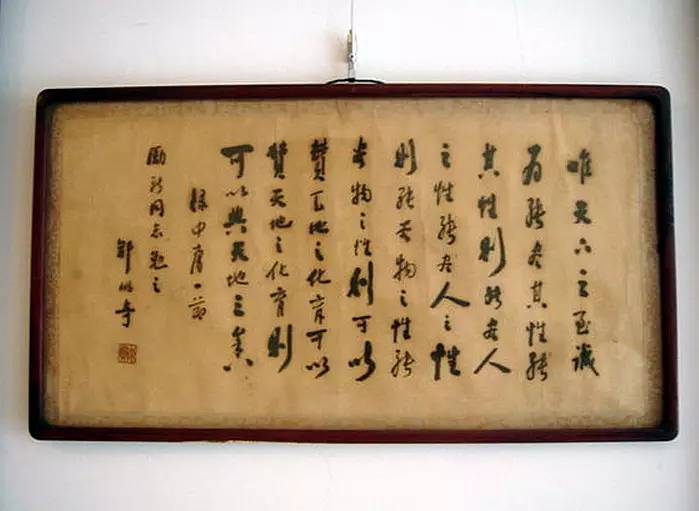 唯天下之至誠
為能盡其性能
其性則能盡人
之性能盡人之性
則能盡物之性能
盡物之性則可以
贊天地之化育可以
贊天地之化育則
可以與天地參矣
錄中庸一節
勵新同志勉之
鄒